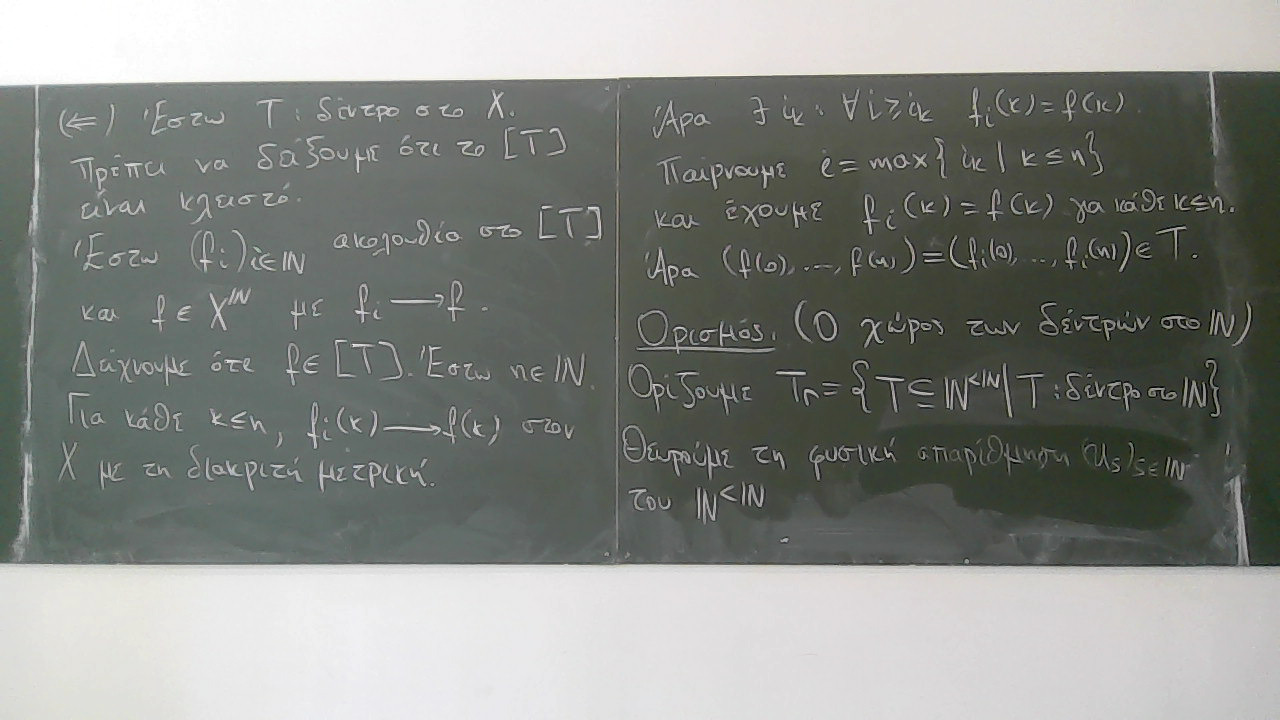 (⇐) Έστω T : δέντρο στο X.
Πρέπει να δείξουμε ότι το [T]
είναι κλειστό.
Έστω (fᵢ)ᵢ∈ℕ ακολουθία στο [T]
και f ∈ X^ℕ με fᵢ ⟶ f.
Δείχνουμε ότι f ∈ [T]. Έστω n ∈ ℕ.
Για κάθε k ≤ n, fᵢ(k) ⟶ f(k) στον
X με τη διακριτή μετρική.
Άρα ∃ iₖ : ∀ i ≥ iₖ fᵢ(k) = f(k).
Παίρνουμε i = max{ iₖ | k ≤ n }
και έχουμε fᵢ(k) = f(k) για κάθε k ≤ n.
Άρα (f(0), ..., f(n)) = (fᵢ(0), ..., fᵢ(n)) ∈ T.
Ορισμός. (Ο χώρος των δέντρων στο ℕ)
Ορίζουμε Tr = { T ⊆ ℕ^<ℕ | T : δέντρο στο ℕ }
Θεωρούμε τη φυσική απαρίθμηση (u_s)_s∈ℕ
του ℕ^<ℕ